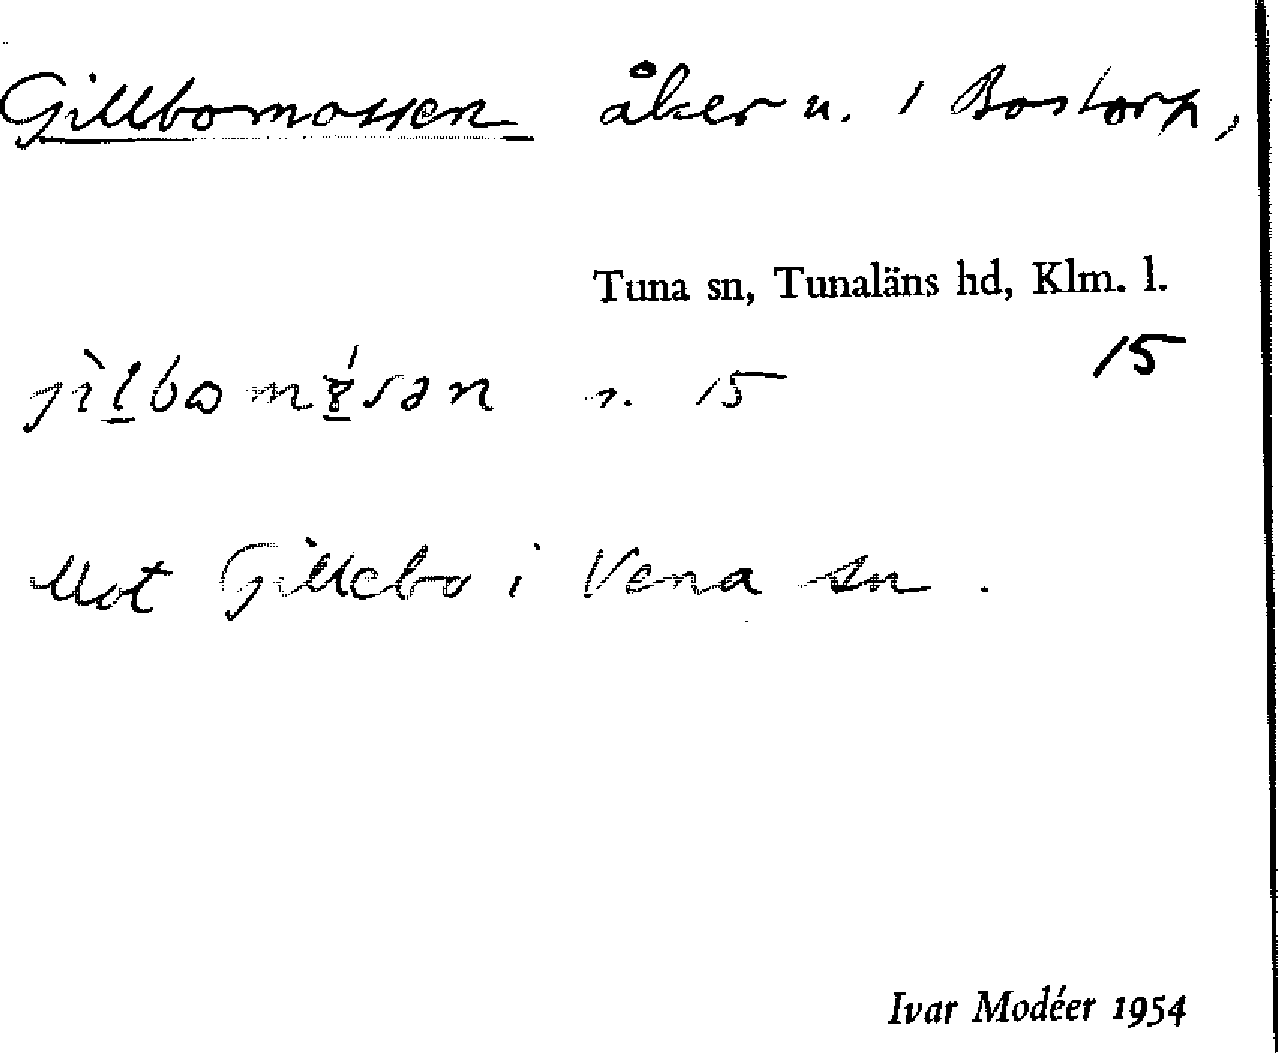 Gillbomossen åker n. i Bostorp,
Tuna sn, Tunaläns hd, Klm. l.
15
s. 15
Mot Gillebo i Vena sn.
Ivar Modéer 1954